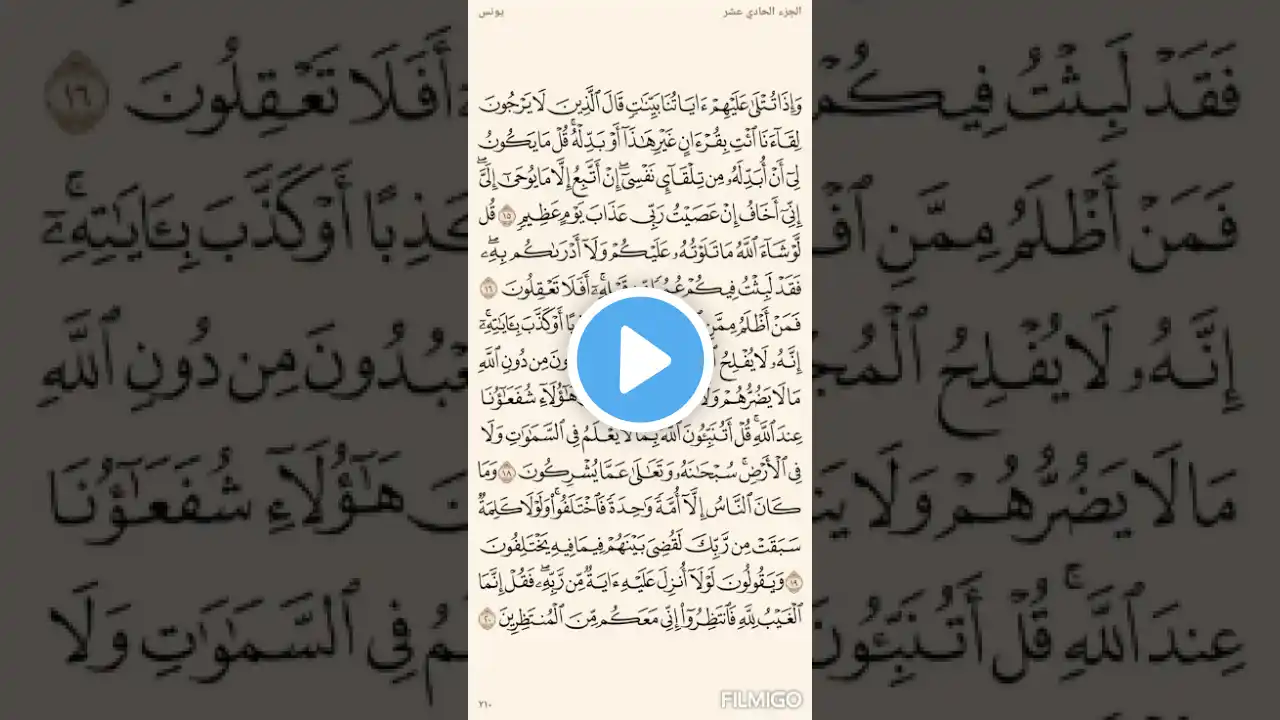 الجزء الحادي عشر
يونس
وَإِذَا تُتْلَىٰ عَلَيْهِمْ ءَايَاتُنَا بَيِّنَٰتٍ قَالَ ٱلَّذِينَ لَا يَرْجُونَ
لِقَآءَنَا ٱئْتِ بِقُرْءَانٍ غَيْرِ هَٰذَآ أَوْ بَدِّلْهُ ۚ قُلْ مَا يَكُونُ
لِىٓ أَنْ أُبَدِّلَهُۥ مِن تِلْقَآئِ نَفْسِىٓ ۖ إِنْ أَتَّبِعُ إِلَّا مَا يُوحَىٰٓ إِلَىَّ ۖ
إِنِّىٓ أَخَافُ إِنْ عَصَيْتُ رَبِّى عَذَابَ يَوْمٍ عَظِيمٍ ١٥ قُل
لَّوْ شَآءَ ٱللَّهُ مَا تَلَوْتُهُۥ عَلَيْكُمْ وَلَآ أَدْرَىٰكُم بِهِۦ ۖ
فَقَدْ لَبِثْتُ فِيكُمْ قَبْلِهِۦٓ ۚ أَفَلَا تَعْقِلُونَ ١٦
فَمَنْ أَظْلَمُ مِمَّنِ أَوْ كَذَّبَ بِـَٔايَٰتِهِۦٓ ۚ
إِنَّهُۥ لَا يُفْلِحُ مِن دُونِ ٱللَّهِ
مَا لَا يَضُرُّهُمْ هَٰٓؤُلَآءِ شُفَعَٰٓؤُنَا
عِندَ ٱللَّهِ ۚ قُلْ أَتُنَبِّـُٔونَ ٱللَّهَ بِمَا لَا يَعْلَمُ فِى ٱلسَّمَٰوَٰتِ وَلَا
فِى ٱلْأَرْضِ ۚ سُبْحَٰنَهُۥ وَتَعَٰلَىٰ عَمَّا يُشْرِكُونَ ١٨ وَمَا
كَانَ ٱلنَّاسُ إِلَّآ أُمَّةً وَٰحِدَةً فَٱخْتَلَفُوا۟ ۚ وَلَوْلَا كَلِمَةٌ
سَبَقَتْ مِن رَّبِّكَ لَقُضِىَ بَيْنَهُمْ فِيمَا فِيهِ يَخْتَلِفُونَ
١٩ وَيَقُولُونَ لَوْلَآ أُنزِلَ عَلَيْهِ ءَايَةٌ مِّن رَّبِّهِۦ ۖ فَقُلْ إِنَّمَا
ٱلْغَيْبُ لِلَّهِ فَٱنتَظِرُوٓا۟ إِنِّى مَعَكُم مِّنَ ٱلْمُنتَظِرِينَ ٢٠
٢١٠
FILMIGO